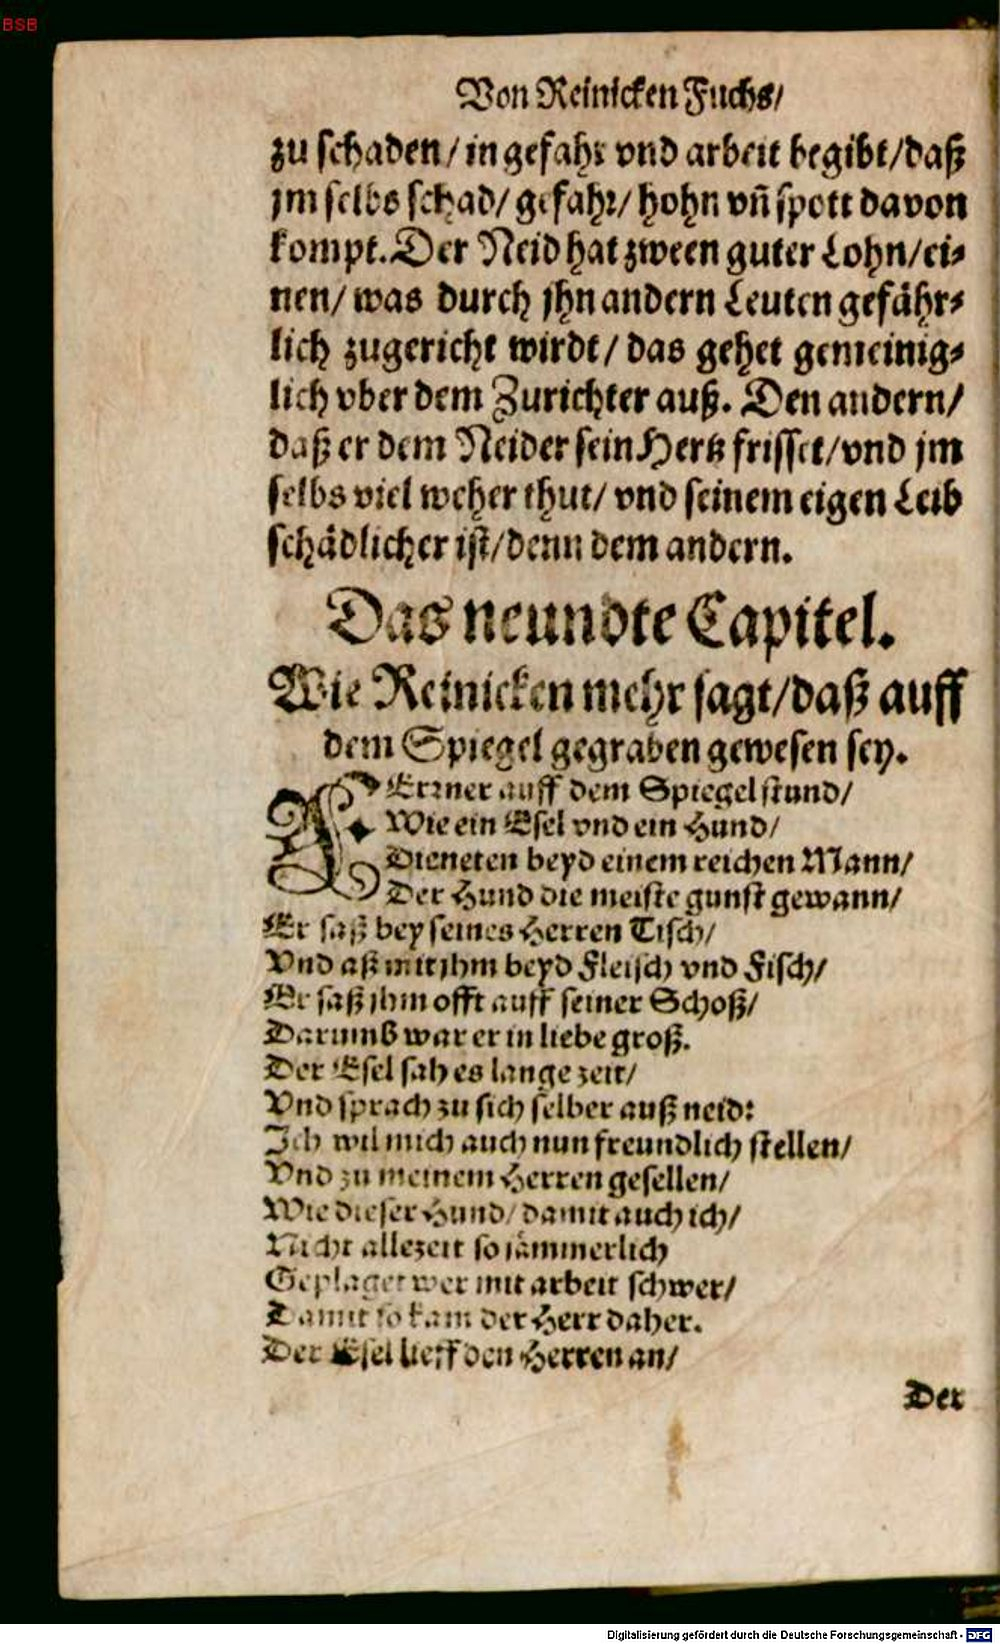 BSB
Von Reinicken Fuchs/
zu schaden/ in gefahr vnd arbeit begibt/ daß
jm selbs schad/ gefahr/ hohn vñ spott davon
kompt. Der Neid hat zween guter Lohn/ ei-
nen/ was durch jhn andern Leuten gefähr-
lich zugericht wirdt/ das gehet gemeinig-
lich vber dem Zurichter auß. Den andern/
daß er dem Neider sein Hertz frisset/ vnd jm
selbs viel weher thut/ vnd seinem eigen Leib
schädlicher ist/ denn dem andern.
Das neundte Capitel.
Wie Reinicken mehr sagt/ daß auff
dem Spiegel gegraben gewesen sey.
FErrner auff dem Spiegel stund/
Wie ein Esel vnd ein Hund/
Dieneten beyd einem reichen Mann/
Der Hund die meiste gunst gewann/
Er saß bey seines Herren Tisch/
Vnd aß mit jhm beyd Fleisch vnd Fisch/
Er saß jhm offt auff seiner Schoß/
Darumb war er in liebe groß.
Der Esel sah es lange zeit/
Vnd sprach zu sich selber auß neid:
Ich wil mich auch nun freundlich stellen/
Vnd zu meinem Herren gesellen/
Wie dieser Hund/ damit auch ich/
Nicht allezeit so jämmerlich
Geplaget wer mit arbeit schwer/
Damit so kam der Herr daher.
Der Esel lieff den Herren an/
Der
Digitalisierung gefördert durch die Deutsche Forschungsgemeinschaft - DFG